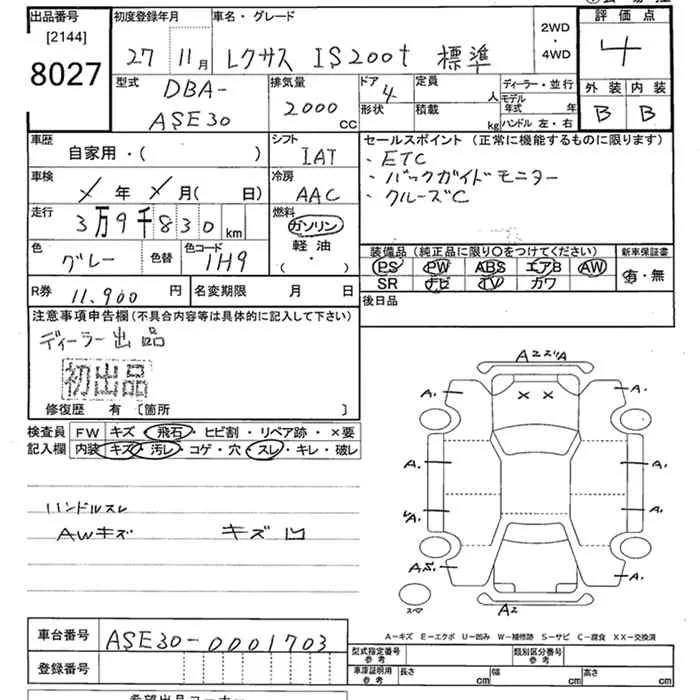 出品番号 初度登録年月 車名・グレード 2WD ・ 4WD 評価点
[2144]
8027
27 11月 レクサス IS200t 標準 4
型式 DBA-ASE30 排気量 2000 CC ドア 4 形状 定員 人 積載 kg ディーラー・並行 モデル年式 年 ハンドル 左・右
外装 内装
B B
車歴 自家用・( ) シフト IAT
セールスポイント (正常に機能するものに限ります)
・ETC
・バックガイドモニター
・クルーズC
車検 年 月( 日) 冷房 AAC
走行 3万9千830 km 燃料 ガソリン 軽油 ( ・ )
色 グレー 色替 色コード 1H9
装備品 (純正品に限り〇をつけてください) 新車保証書
PS PW ABS エアB AW 有・無
SR ナビ TV カワ
R券 11,900 円 名変期限 月 日
後日品
注意事項申告欄 (不具合内容等は具体的に記入して下さい)
ディーラー出品
初出品
修復歴 有 〔箇所 〕
検査員 FW キズ・飛石・ヒビ割・リペア跡・×要
記入欄 内装 キズ・汚レ・コゲ・穴・スレ・キレ・破レ
ハンドルスレ
AWキズ キズ凹
A. A.
A. A.
A. A.
A.
スペア A2
A-キズ E-エクボ U-凹み W-補修跡 S-サビ C-腐食 XX-交換済
車台番号 ASE30-0001703
登録番号
型式指定番号 参考 類別区分番号 参考
車庫証明用 参考 長さ cm 幅 cm 高さ cm